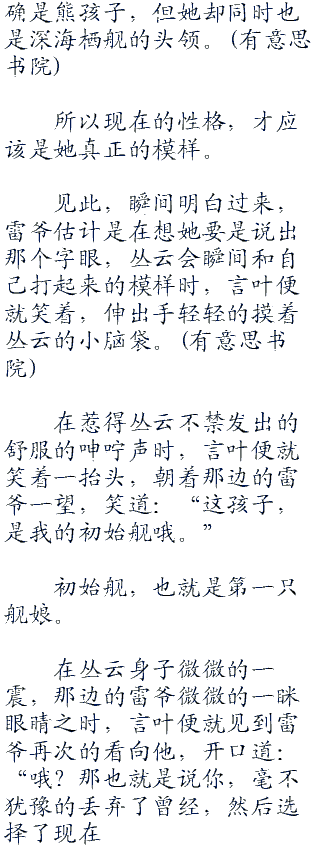 确是熊孩子，但她却同时也
是深海栖舰的头领。(有意思
书院)
所以现在的性格，才应
该是她真正的模样。
见此，瞬间明白过来，
雷爷估计是在想她要是说出
那个字眼，丛云会瞬间和自
己打起来的模样时，言叶便
就笑着，伸出手轻轻的摸着
丛云的小脑袋。(有意思书
院)
在惹得丛云不禁发出的
舒服的呻咛声时，言叶便就
笑着一抬头，朝着那边的雷
爷一望，笑道：“这孩子，
是我的初始舰哦。”
初始舰，也就是第一只
舰娘。
在丛云身子微微的一
震，那边的雷爷微微的一眯
眼晴之时，言叶便就见到雷
爷再次的看向他，开口道：
“哦？那也就是说你，毫不
犹豫的丢弃了曾经，然后选
择了现在